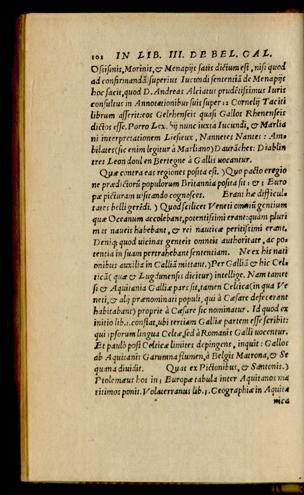 102 IN LIB. III. DE BEL. GAL.
Osissimis, Morinis, & Menapijs satis dictum est, nisi quod
ad confirmandã superius Iucundi sententiã de Menapijs
hoc facit, quod D. Andreas Alciatus prudẽtissimus Iuris
consultus in Annotationibus suis super 12 Cornelij Taciti
librum asserit: eos Gelrhenseis quasi Gallos Rhenenseis
dictos esse. Porro Lex. hij nunc iuxta Iucundi, & Marlia
ni interpretationem Liesieux, Nannetes Nantes: Am
biliates (sic enim legitur à Marliano) Daurãches: Diablin
tres Leondoul en Bertegne à Gallis uocantur.
Quæ contra eas regiones posita est. ) Quo pacto eregio
ne prædictorũ populorum Britannia posita sit: & Euro
pæ picturam uisitando cognosces. Erant hæ difficul
tates belli gerẽdi. ) Quod scilicet Veneti omniũ gentium
quæ Oceanum accolebant, potentissimi erant: quãm pluri
mis naueis habebant, & rei nauticæ peritissimi erant.
Deniq; quod uicinas genteis omneis authoritate, ac po-
tentia in suam pertrahebant sententiam. Ne ex his nati
onibus auxilia in Galliã mittant. ) Per Galliã & hic Cel-
ticã ( quæ & Lugdunensis dicitur ) intellige. Nam tamet
si & Aquitania Galliæ pars sit, tamen Celtica (in qua Ve
neti, & alij prænominati populi, qui à Cæsare defecerant
habitabant) proprie à Cæsare sic nominatur. Id quod ex
initio lib. 1. constat, ubi tertiam Galliæ partem esse scribit:
qui ipsorum lingua Celtæ, sed à Romanis Galli uocentur.
Et paulò post Celticæ limites depingens, inquit: Gallos
ab Aquitanis Garumna flumen, à Belgis Matrona, & Se
quana diuidit. Quas ex Pictionibus, & Santonis. )
Ptolemæus hos in 3 Europæ tabula inter Aquitanos ma
ritimos ponit. Volaterranus lib. 3. Geographiæ in Aquita
nica